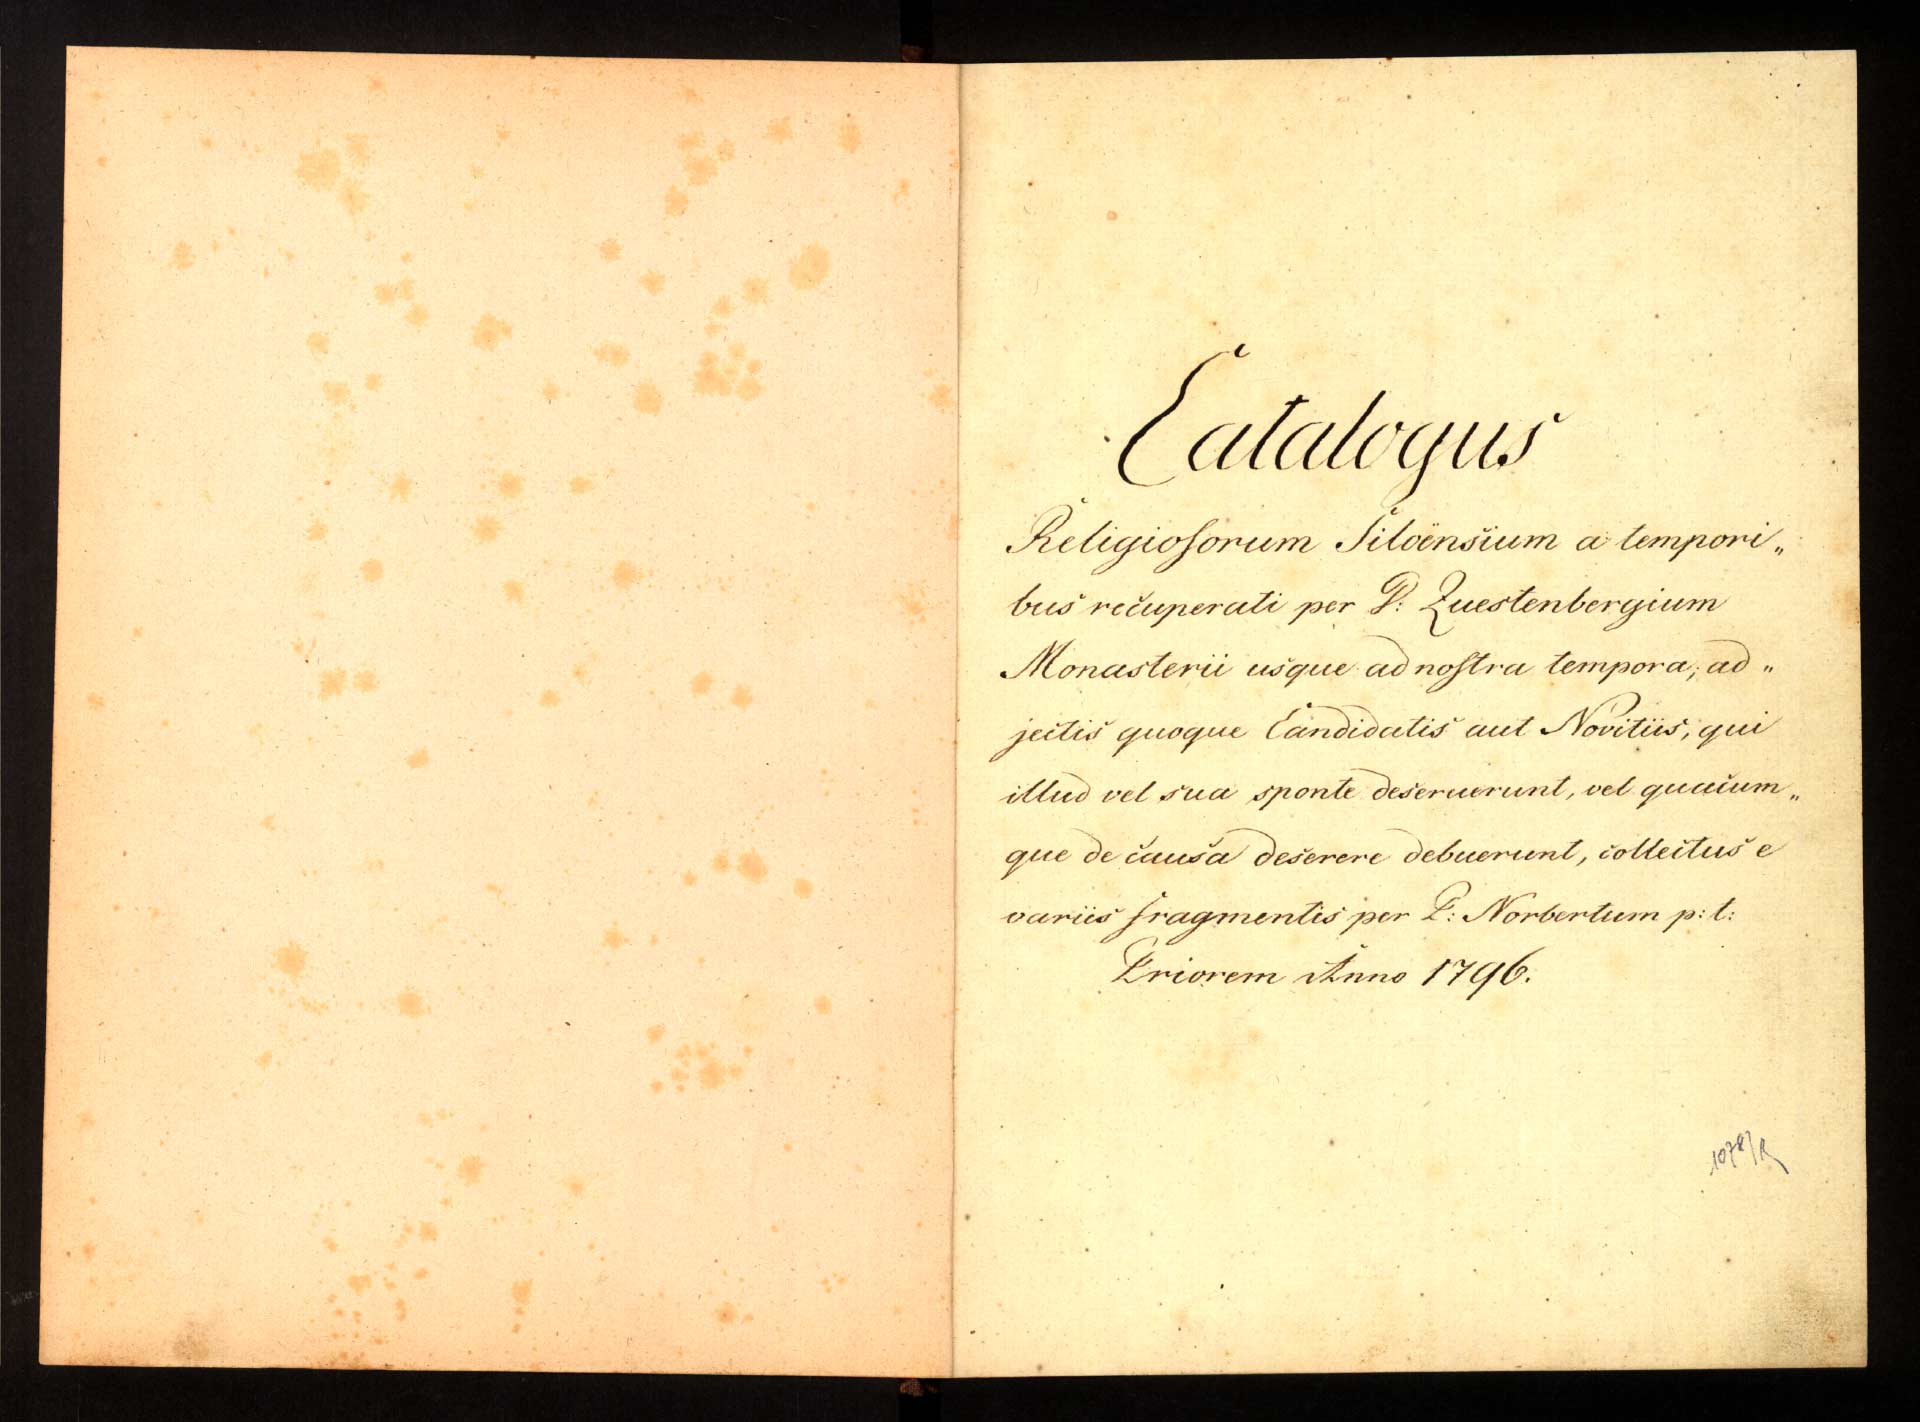 Catalogus
Religiosorum Siloënsium a tempori„
bus recuperati per P: Questenbergium
Monasterii usque ad nostra tempora, ad„
jectis quoque Candidatis aut Novitiis, qui
illud vel sua sponte deseruerunt, vel quacum„
que de causa deserere debuerunt, collectus e
variis fragmentis per P: Norbertum p: t:
Priorem Anno 1796.